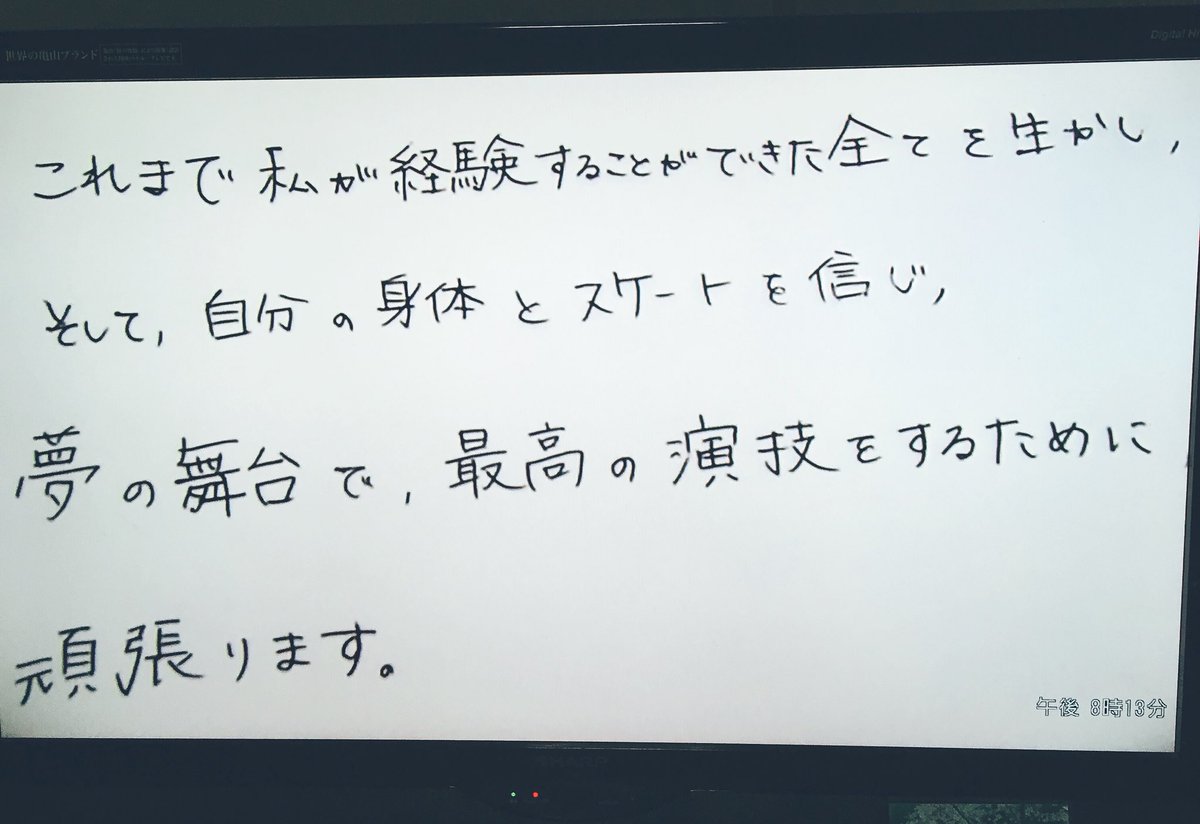 世界の亀山ブランド
Digital Hi
これまで私が経験することができた全てを生かし,
そして,自分の身体とスケートを信じ,
夢の舞台で,最高の演技をするために
頑張ります。
午後 8時13分
SHARP